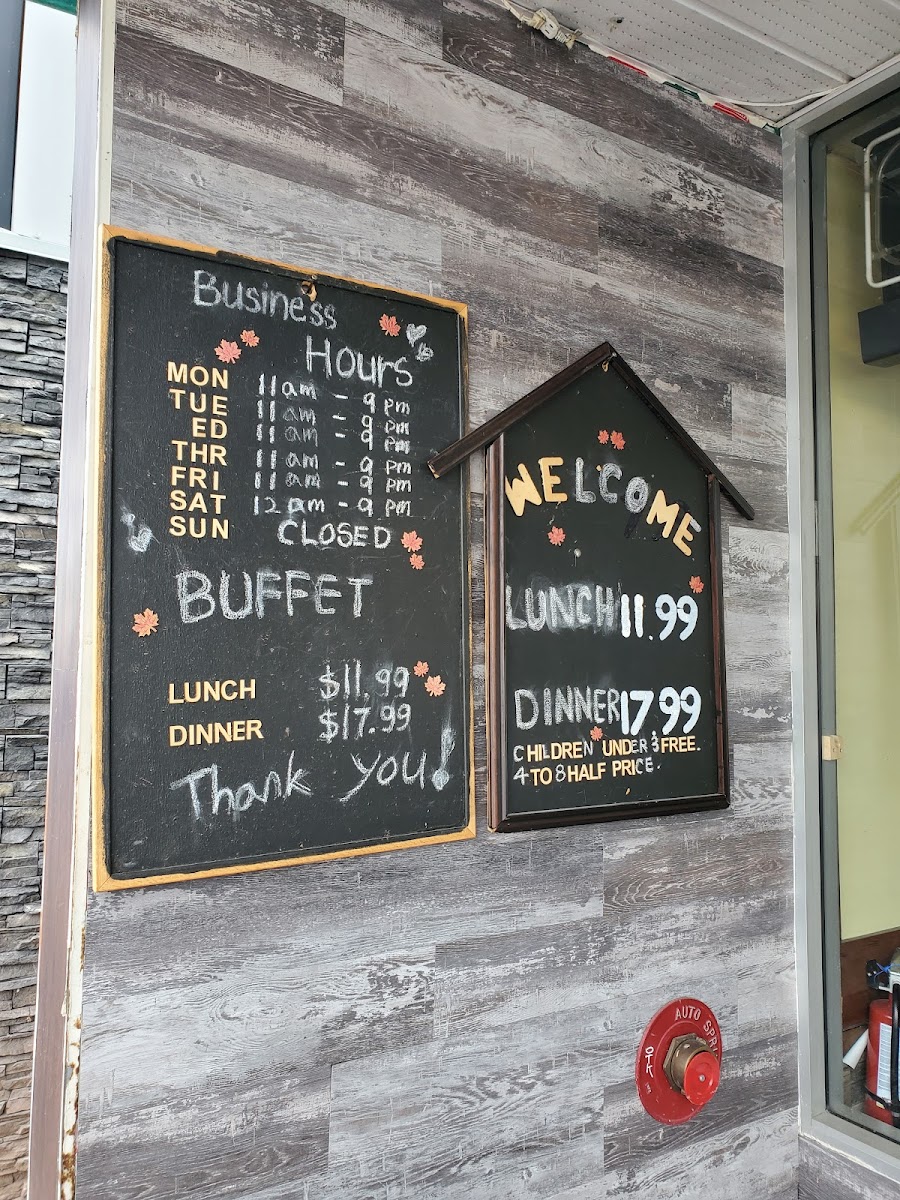 Business
Hours
MON 11am - 9pm
TUE 11am - 9pm
ED 11am - 9pm
THR 11am - 9pm
FRI 11am - 9pm
SAT 12am - 9pm
SUN CLOSED
BUFFET
LUNCH $11.99
DINNER $17.99
Thank you!
WELCOME
LUNCH 11.99
DINNER 17.99
CHILDREN UNDER 3 FREE.
4 TO 8 HALF PRICE.
AUTO SPRI